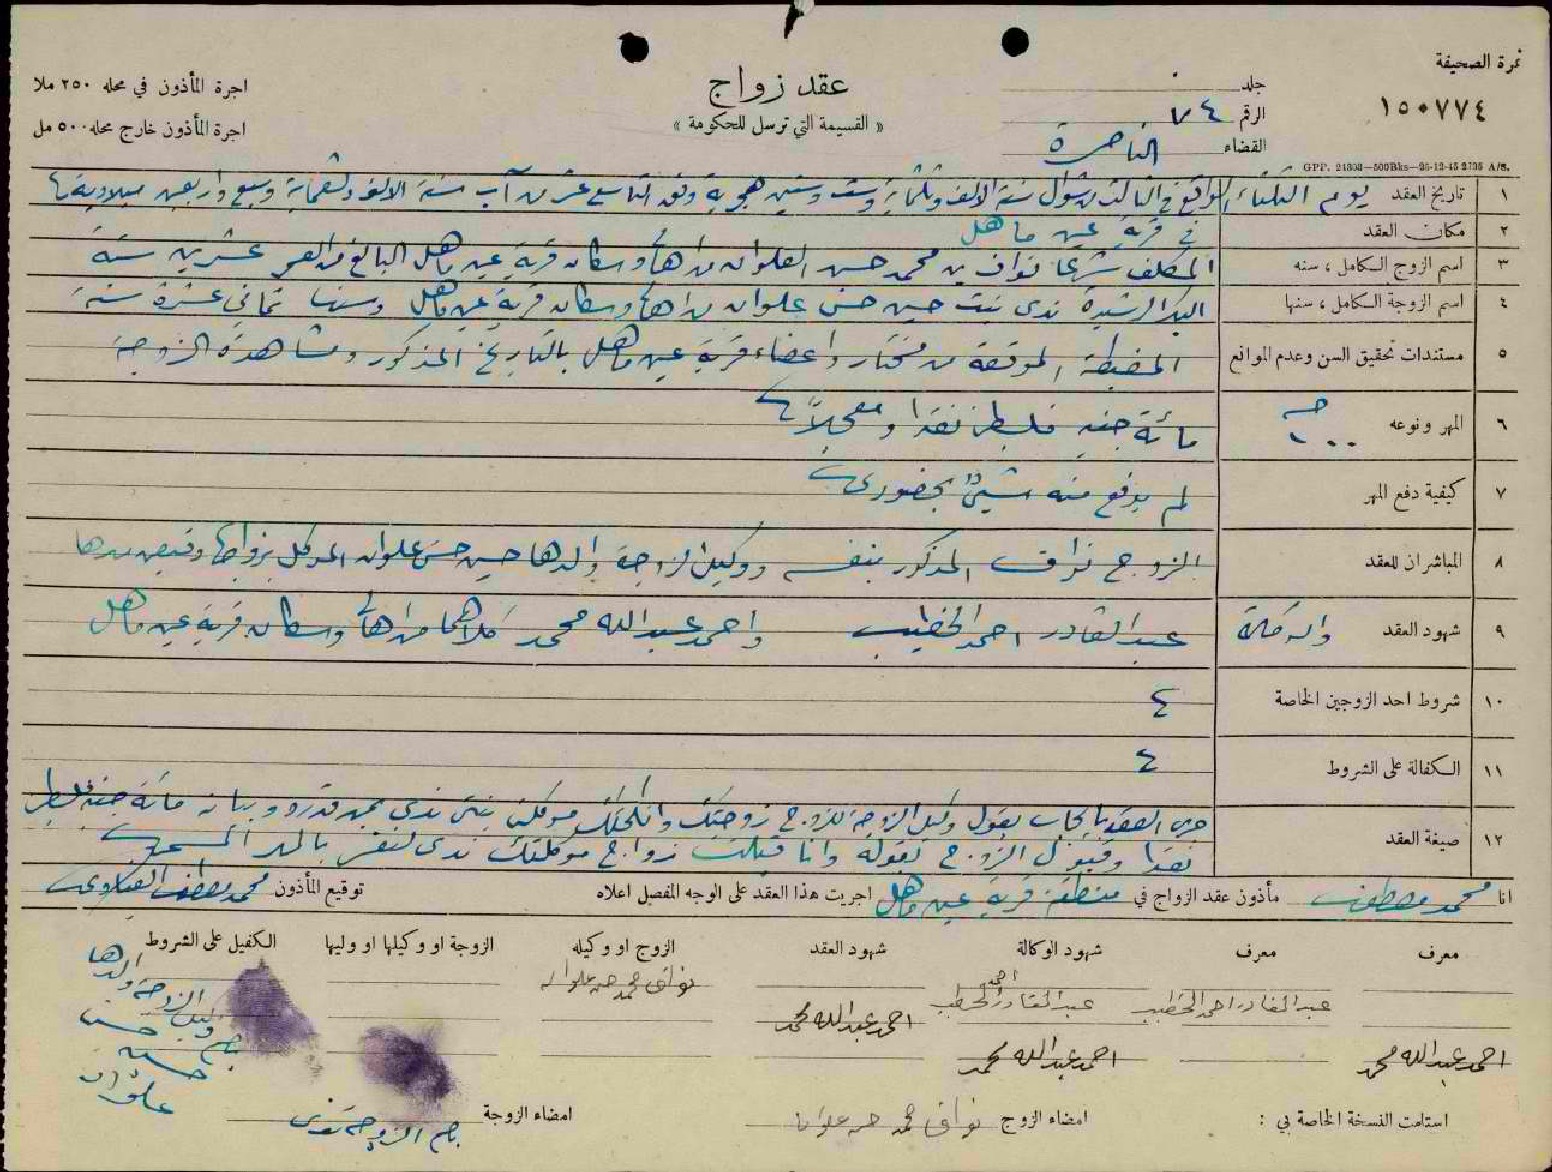 نمرة الصحيفة
١٥٠٧٧٤
جلد
الرقم ٧٤
القضاء الناصرة
عقد زواج
« القسيمة التي ترسل للحكومة »
اجرة المأذون في محله ٢٥٠ ملا
اجرة المأذون خارج محله ٥٠٠ مل
GPP. 21303—500Bks—26-12-45 2735 A/S.
١ تاريخ العقد يوم الثلثاء الواقع في الثالث من شوال سنة الالف وثلثماية وست وستين هجرية وفق التاسع عشر من آب سنة الالف وتسعماية وسبع واربعين ميلادية
٢ مكان العقد في قرية عين ماهل
٣ اسم الزوج الكامل ، سنه المكلف شرعا نواف بن محمد حسن العلوان من اهالي وسكان قرية عين ماهل البالغ من العمر عشرين سنة
٤ اسم الزوجة الكامل ، سنها البكر الرشيدة ندى بنت حسين حسن علوان من اهالي وسكان قرية عين ماهل وسنها ثماني عشرة سنة
٥ مستندات تحقيق السن وعدم الموانع المضبطة الموقعة من مختار واعضاء قرية عين ماهل بالتاريخ المذكور ومشاهدة الزوجة
٦ المهر ونوعه ١٠٠ مائة جنيه فلسطيني نقدا ومعجلاً
٧ كيفية دفع المهر لم يدفع منه شيئ بحضوري
٨ المباشران للعقد الزوج نواف المذكور بنفسه ووكيل الزوجة والدها حسين حسن علوان الموكل بزواجها وقبض مهرها
٩ شهود العقد والوكالة عبد القادر احمد الخطيب واحمد عبد الله محمد كلاهما من اهالي وسكان قرية عين ماهل
١٠ شروط احد الزوجين الخاصة
١١ الكفالة على الشروط
١٢ صيغة العقد جرى العقد بايجاب بقول وكيل الزوجة للزوج زوجتك وانكحتك موكلتي بنتي ندى بمهر قدره وبيانه مائة جنيه فلسطيني
نقدا وقبول الزوج بقوله وانا قبلت زواج موكلتك ندى لنفسي بالمهر المسمى
انا محمد مصطفى مأذون عقد الزواج في منطقة قرية عين ماهل اجريت هذا العقد على الوجه المفصل اعلاه توقيع المأذون محمد مصطفى
معرف معرف شهود الوكالة شهود العقد الزوج او وكيله الزوجة او وكيلها او وليها الكفيل على الشروط
عبد القادر احمد الخطيب عبد القادر احمد الخطيب نواف محمد حسن علوان
احمد عبد الله محمد
احمد عبد الله محمد احمد عبد الله محمد
وكيل الزوجة والدها
بصم حسين
حسن
علوان
استلمت النسخة الخاصة بي : امضاء الزوج نواف محمد حسن علوان امضاء الزوجة بصم الزوجة ندى